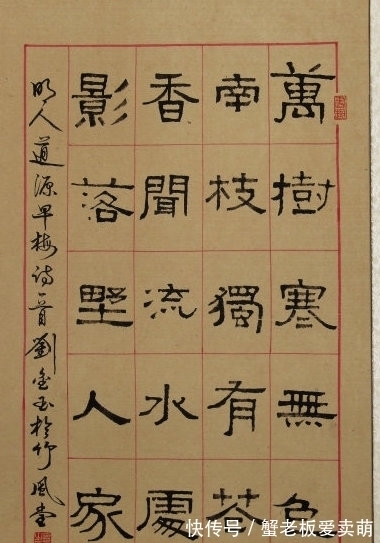 萬樹寒無色
南枝獨有花
香聞流水處
影落墅人家
明人道源早梅诗一首劉於竹風堂
快传号／蟹老板爱卖萌